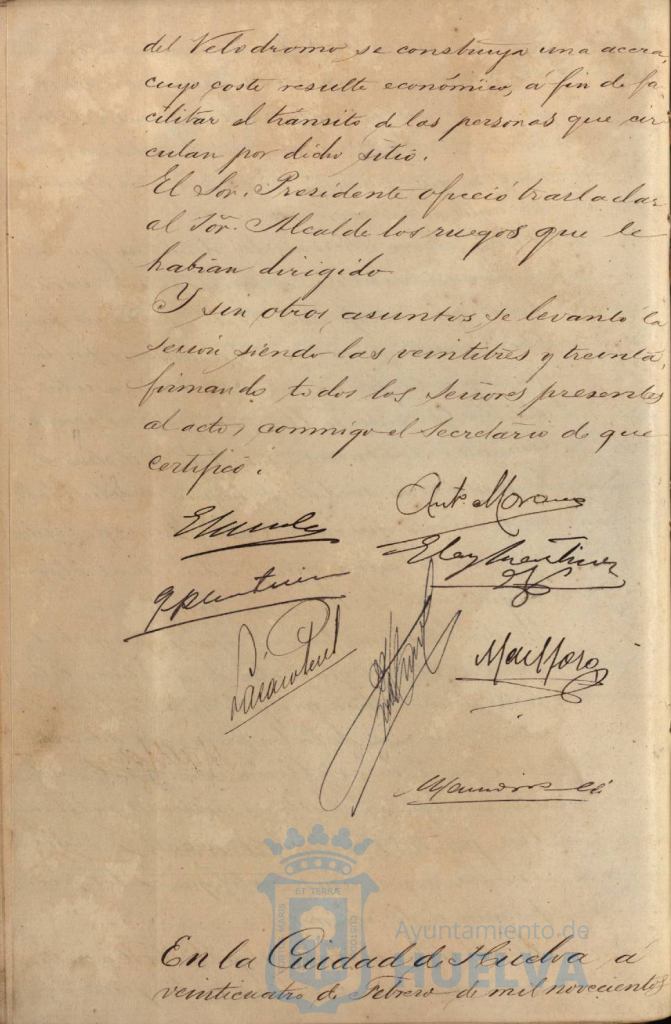 del Velodromo, se construya una acera,
cuyo coste resulte económico, á fin de fa
cilitar el tránsito de las personas que cir
culan por dicho sitio.
El Sor. Presidente ofreció trasladar
al Sõr. Alcalde los ruegos que le
habian dirigido
Y sin otros asuntos se levantó la
sesión siendo las veintitres y treinta,
firmando todos los señores presentes
al acto, conmigo el Secretario de que
certifico.
Antº Moreno
ET TERRÆ
MARIS
CUSTODIA
Ayuntamiento de
HUELVA
En la Ciudad de Huelva á
veinticuatro de Febrero de mil novecientos